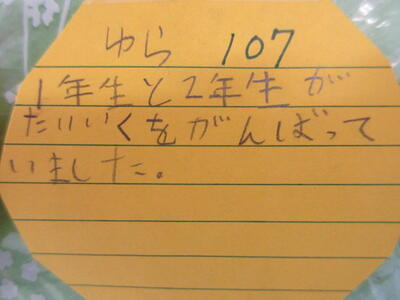 ゆら 107
1年生と2年生が
たいいくをがんばって
いました。